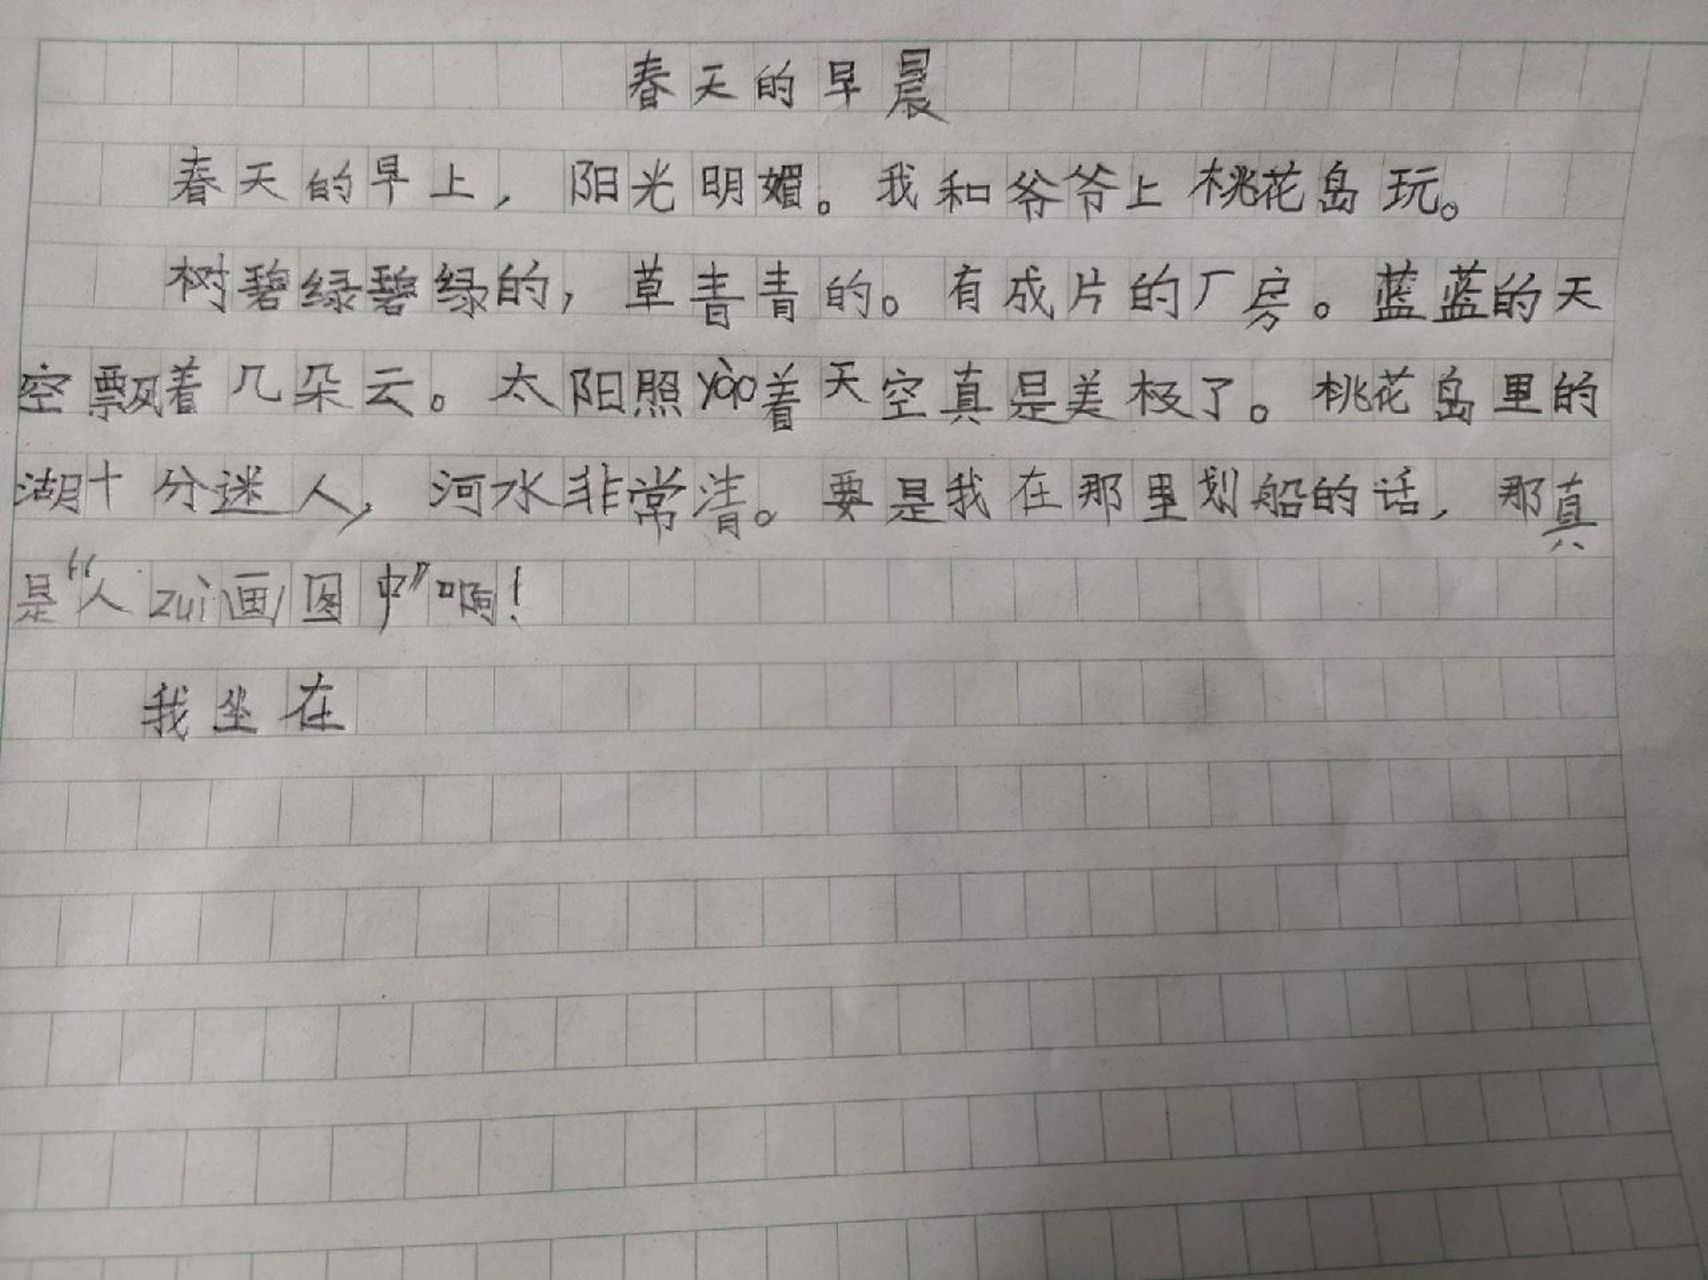 春天的早晨
春天的早上，阳光明媚。我和爷爷上桃花岛玩。
树碧绿碧绿的，草青青的。有成片的厂房。蓝蓝的天
空飘着几朵云。太阳照yào着天空真是美极了。桃花岛里的
湖十分迷人，河水非常清。要是我在那里划船的话，那真
是“人zuì画图中”啊！
我坐在